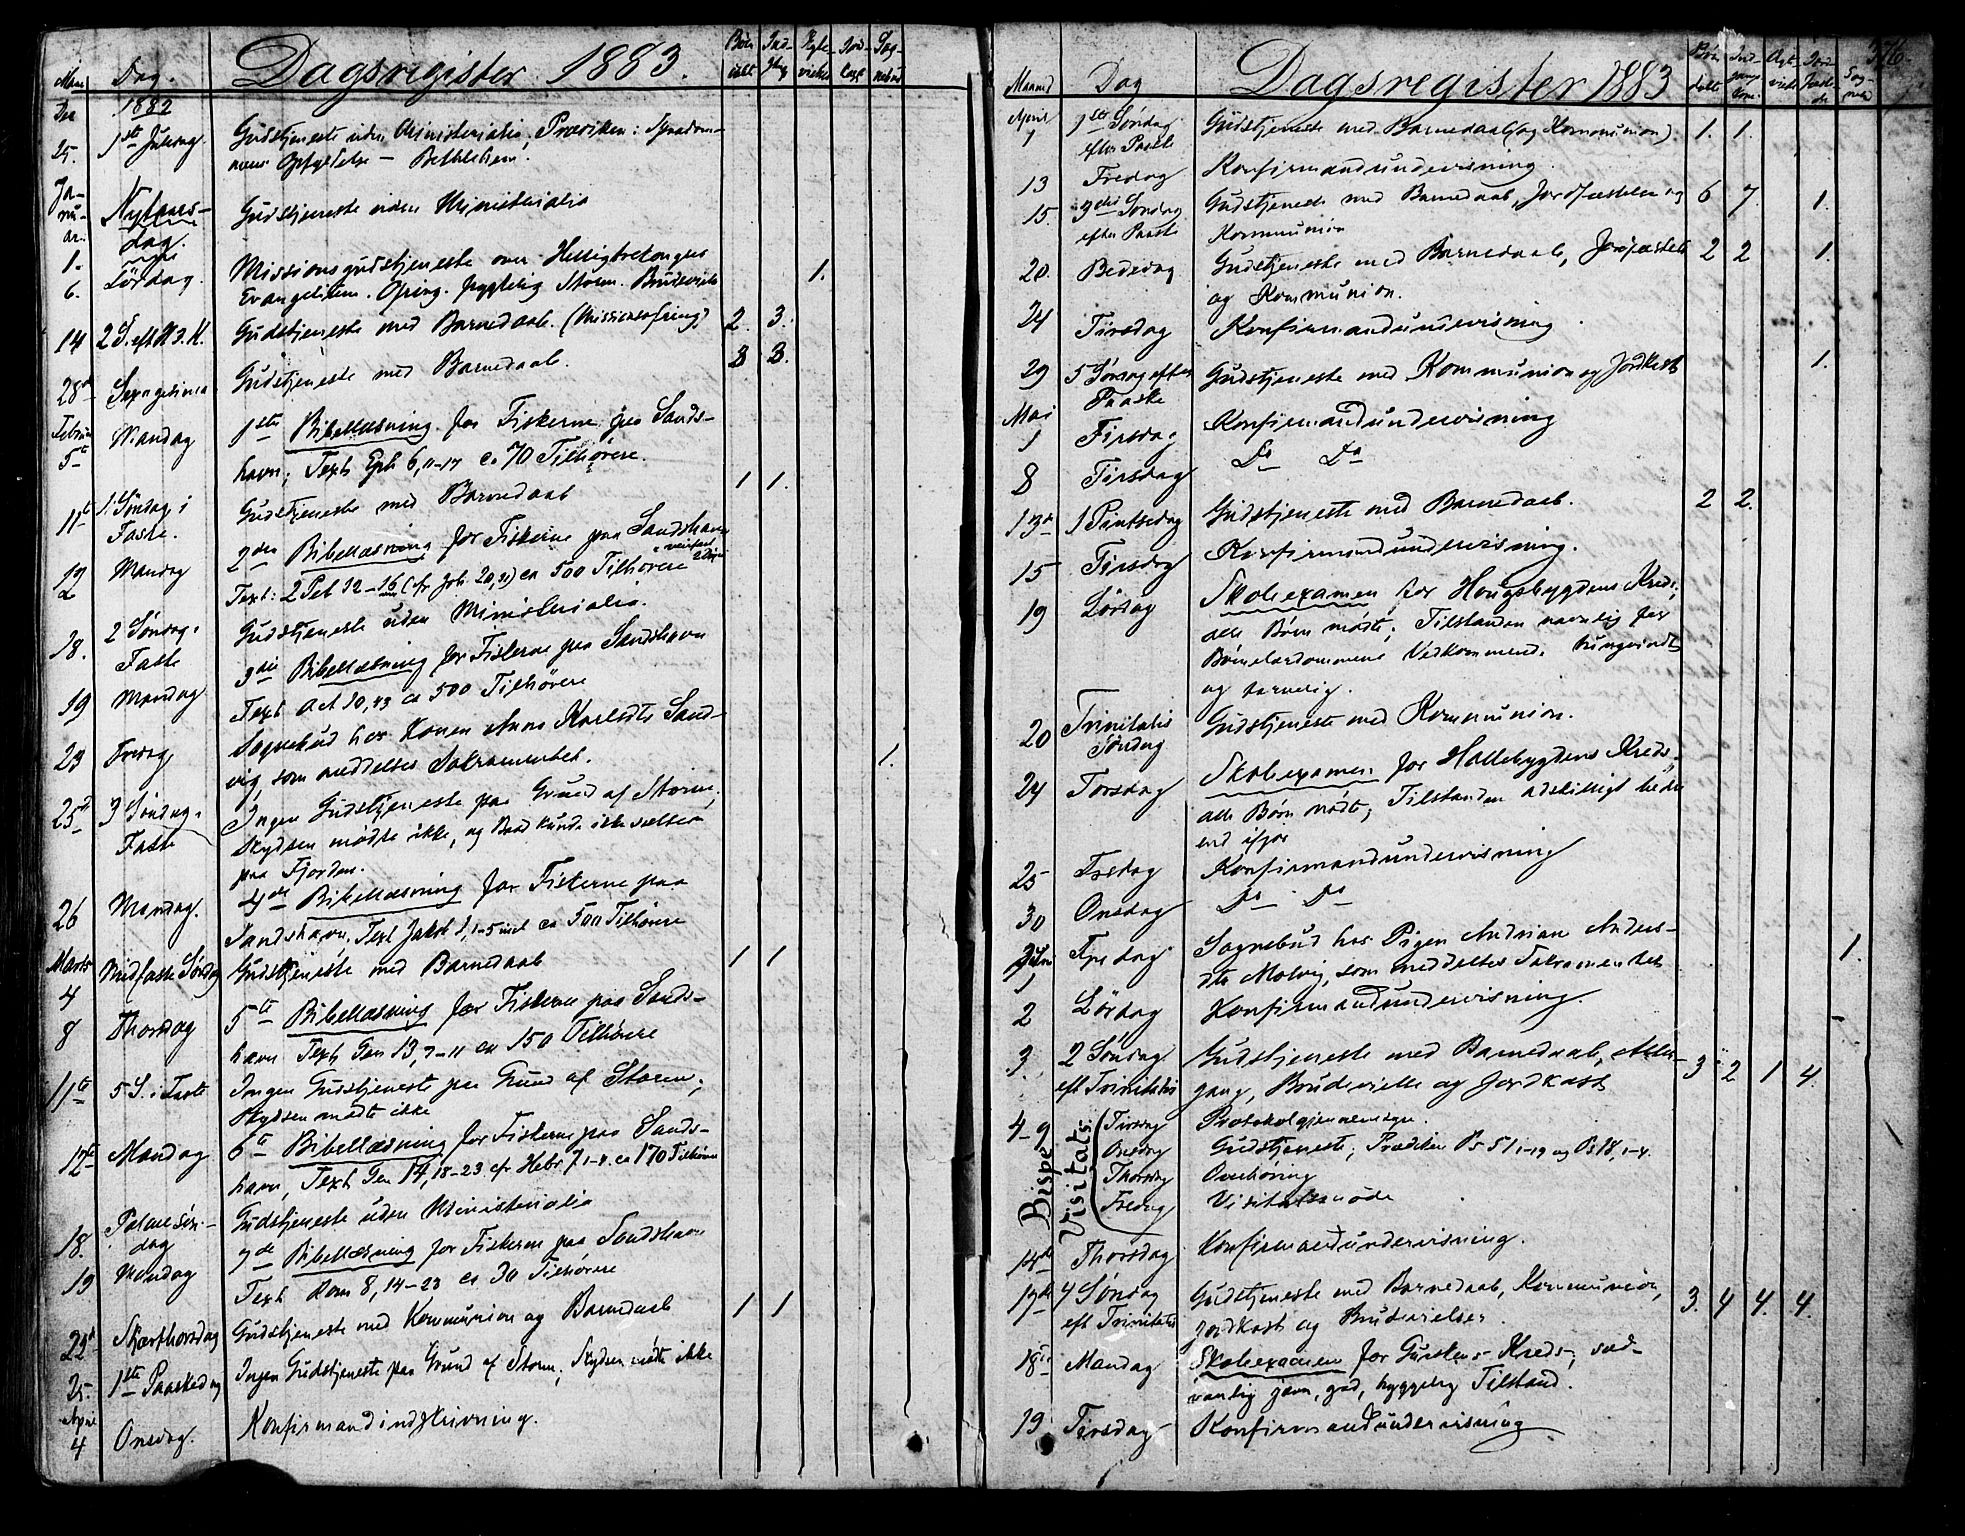 Dagsregister 1883.
Dag.
1882
25. 1ste Juledag. Gudstjeneste uden Ministerialia, Prædiken:
Opfyldelse – Bethlehem.
Januar
1. Nytaarsdag. Gudstjeneste uden Ministerialia
6. Lørdag. Missionsgudstjeneste over Helligtrekonges 1.
Evangelium. Storm.
14 2 S. eft H.3.K. Gudstjeneste med Barnedaab. (Missionsofring) 2. 3.
28de Sexagesima Gudstjeneste med Barnedaab. 3 3.
Februar
5te Mandag 1ste Bibellæsning for Fiskerne paa Sands-
havn; Text Eph 6,11-17 ca 70 Tilhørere.
11te 1. Søndag i Faste. Gudstjeneste med Barnedaab 1 1.
12 Mandag 2den Bibellæsning for Fiskerne paa Sandshavn
Text: 2 Pet 12-16 (cfr Joh. 20,31) ca 500 Tilhørere
18. 2 Søndag i Faste Gudstjeneste uden Ministerialia.
19 Mandag 3die Bibellæsning for Fiskerne paa Sandshavn
Text Act 10,43 ca 500 Tilhørere
23 Fredag Sognebud hos Konen Anne Karlsdtr Sand-
vig, som meddeltes Sakramentet. 1.
25de 3 Søndag i Faste Ingen Gudstjeneste paa Grund af Storm;
Skydsen mødte ikke, og Baad kunde ikke
paa Fjorden.
26 Mandag. 4de Bibellæsning for Fiskerne paa
Sandshavn. Text Jakob 1,1-5 incl ca 500 Tilhørere
Marts
4 Midfaste Søndag Gudstjeneste med Barnedaab 1 1
8 Thorsdag 5te Bibellæsning for Fiskerne paa Sands-
havn Text Gen 13,7-11 ca 150 Tilhørere
11te 5 S. i Faste Ingen Gudstjeneste paa Grund af Storm;
Skydsen mødte ikke
12te Mandag 6te Bibellæsning for Fiskerne paa Sands-
havn, Text Gen 14,18-23 cfr Hebr 7,1-4. ca 170 Tilhørere
18. Palmesøndag Gudstjeneste uden Ministerialia
19 Mandag 7de Bibellæsning for Fiskerne paa Sandshavn
Text Rom 8,14-23 ca 30 Tilhørere
22de Skjærthorsdag Gudstjeneste med Kommunion og Barnedaab 1 1
25. 1ste Paaskedag Ingen Gudstjeneste paa Grund af Storm; Skydsen mødte ikke
April
4 Onsdag. Konfirmandindskrivning.
376.
Maaned Dag Dagsregister 1883
April
1ste Søndag efter Paaske Gudstjeneste med Barnedaab (og Kommunion) 1. 1.
13 Fredag Konfirmandundervisning.
15 3die Søndag efter Paaske Gudstjeneste med Barnedaab, Jordfæstelse og 6 7 1.
Kommunion
20. Bededag Gudstjeneste med Barnedaab, Jordfæstelse 2 2 1.
og Kommunion.
24 Tirsdag Konfirmandundervisning
29 5 Søndag efter Paaske Gudstjeneste med Kommunion og Jordkast 1.
Mai
1 Tirsdag Konfirmandundervisning
8 Tirsdag Do Do
13de 1 Pintsedag Gudstjeneste med Barnedaab. 2 2.
15 Tirsdag Konfirmandundervisning.
19 Lørdag Skoleexamen for Hougsbygdens Kreds;
alle Børn mødte; Tilstanden navnlig for
Børnelærdommens Vedkommende
og
20 Trinitatis Søndag Gudstjeneste med Kommunion.
24 Torsdag Skoleexamen for Hallebygdens Kreds,
alle Børn mødte; Tilstanden adskilligt bedre
end ifjor
25 Fredag Konfirmandundervisning
30 Onsdag Do Do
Fredag Sognebud hos Pigen Andrian Anders-
dtr Molvig, som meddeltes Sakramentet 1.
2 Lørdag Konfirmandundervisning.
3 2 Søndag eft Trinitatis Gudstjeneste med Barnedaab, Alter-
gang, Brudevielse og Jordkast 3 2 1 4.
4-9 Bispe Visitats: Tirsdag Protokolgjennemsyn.
Onsdag Gudstjeneste, Prædiken Ps 51,1-19 og Ps 18,1-4.
Thorsdag Overhøring
Fredag Visitatsmøde
14de Thorsdag Konfirmandundervisning.
17de 4 Søndag eft Trinitatis Gudstjeneste med Barnedaab, Kommunion,
Jordkast og Brudevielser. 3. 4 4. 4.
18de Mandag Skoleexamen for Gurskens Kreds, sæd-
vanlig jævn, god, hyggelig Tilstand.
19 Tirsdag Konfirmandundervisning